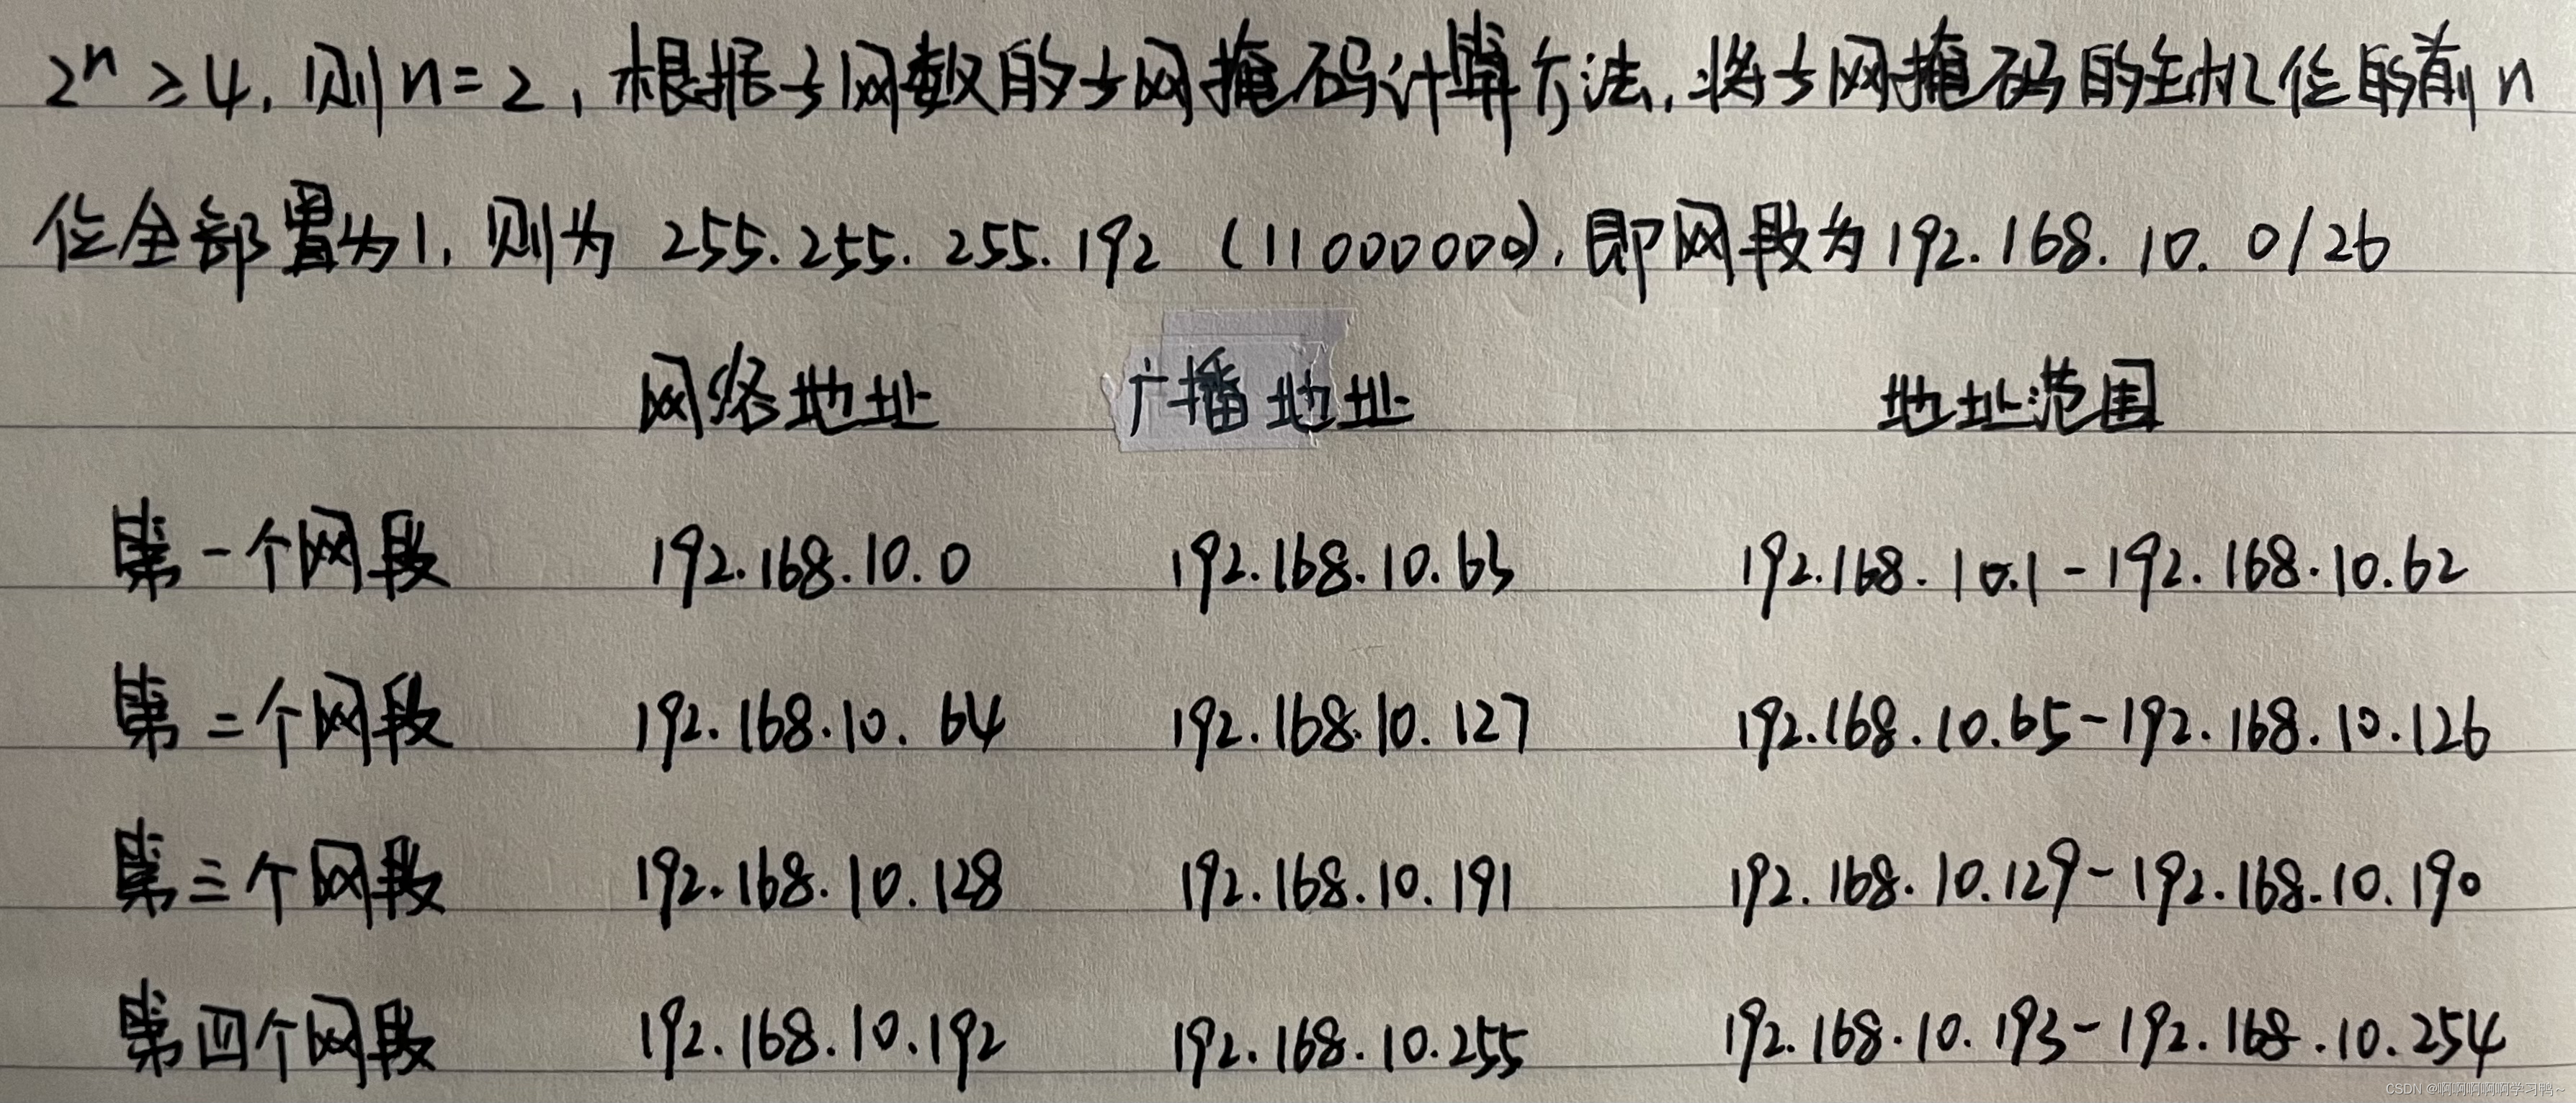 2ⁿ ≥ 4, 则 n = 2, 根据子网数的子网掩码计算方法, 将子网掩码的主机位的前 n
位全部置为1, 则为 255.255.255.192 (11000000), 即网段为 192.168.10.0/26
网络地址 广播地址 地址范围
第一个网段 192.168.10.0 192.168.10.63 192.168.10.1-192.168.10.62
第二个网段 192.168.10.64 192.168.10.127 192.168.10.65-192.168.10.126
第三个网段 192.168.10.128 192.168.10.191 192.168.10.129-192.168.10.190
第四个网段 192.168.10.192 192.168.10.255 192.168.10.193-192.168.10.254
CSDN @啊啊啊啊啊学习鸭~